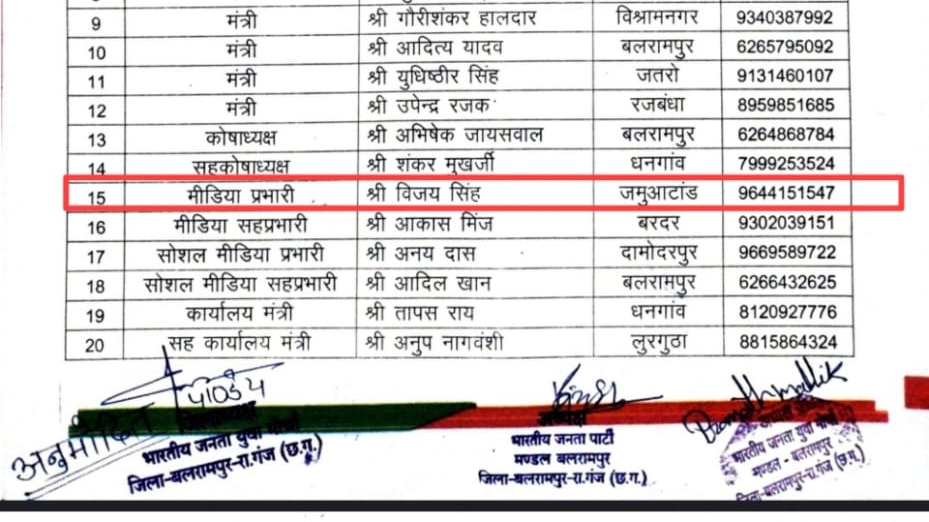 9 मंत्री श्री गौरीशंकर हालदार विश्रामनगर 9340387992
10 मंत्री श्री आदित्य यादव बलरामपुर 6265795092
11 मंत्री श्री युधिष्ठीर सिंह जतरो 9131460107
12 मंत्री श्री उपेन्द्र रजक रजबंधा 8959851685
13 कोषाध्यक्ष श्री अभिषेक जायसवाल बलरामपुर 6264868784
14 सहकोषाध्यक्ष श्री शंकर मुखर्जी धनगांव 7999253524
15 मीडिया प्रभारी श्री विजय सिंह जमुआटांड 9644151547
16 मीडिया सहप्रभारी श्री आकास मिंज बरदर 9302039151
17 सोशल मीडिया प्रभारी श्री अनय दास दामोदरपुर 9669589722
18 सोशल मीडिया सहप्रभारी श्री आदिल खान बलरामपुर 6266432625
19 कार्यालय मंत्री श्री तापस राय धनगांव 8120927776
20 सह कार्यालय मंत्री श्री अनुप नागवंशी लुरगुठा 8815864324
अनुमोदित
भारतीय जनता युवा मोर्चा
जिला-बलरामपुर-रा.गंज (छ.ग.)
अध्यक्ष
भारतीय जनता पार्टी
मण्डल बलरामपुर
जिला-बलरामपुर-रा.गंज (छ.ग.)
भारतीय जनता युवा मोर्चा
मण्डल - बलरामपुर
जिला-बलरामपुर-रा.गंज (छ.ग.)